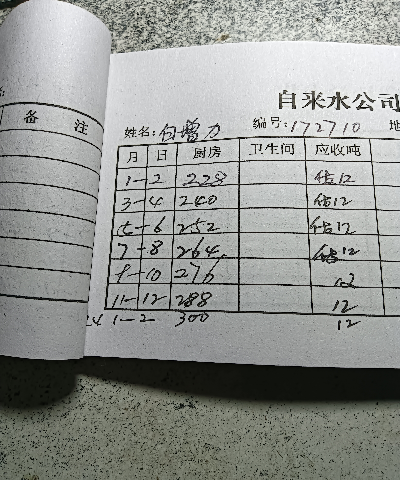 备 注
自来水公司
姓名: 白增力 编号: 172710
月 日 厨房 卫生间 应收吨
1-2 228 估12
3-4 240 估12
5-6 252 估12
7-8 264 估12
9-10 276 12
11-12 288 12
1-2 300 12